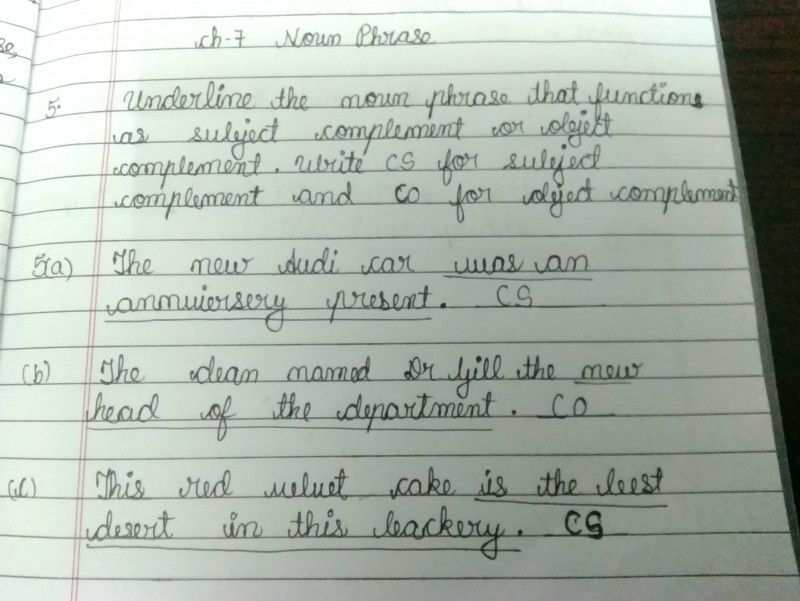 ch-7 Noun Phrase
5. Underline the noun phrase that functions
as subject complement or object
complement. Write CS for subject
complement and CO for object complement
5(a) The new Audi car was an
annuiersery present. CS
(b) The dean named Dr Gill the new
head of the department. CO
(c) This red veluet cake is the best
desert in this backery. CS